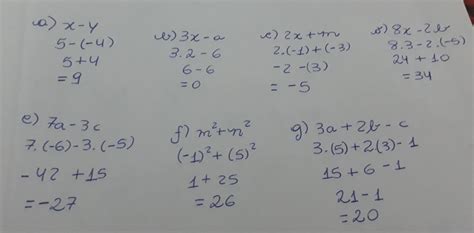 a) x - y
5 - (-4)
5 + 4
= 9
b) 3x - a
3.2 - 6
6 - 6
= 0
c) 2x + m
2.(-1) + (-3)
-2 - (3)
= -5
d) 8x - 2b
8.3 - 2.(-5)
24 + 10
= 34
e) 7a - 3c
7.(-6) - 3.(-5)
-42 + 15
= -27
f) m² + n²
(-1)² + (5)²
1 + 25
= 26
g) 3a + 2b - c
3.(5) + 2(3) - 1
15 + 6 - 1
21 - 1
= 20